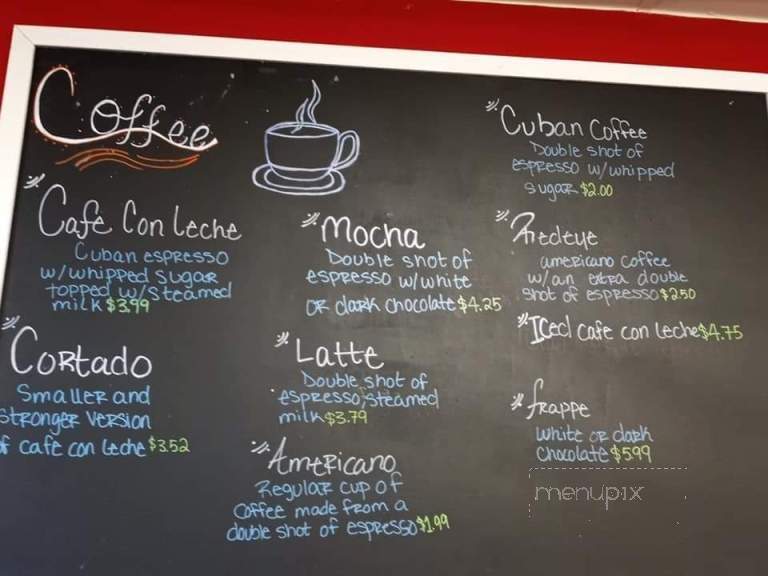 Coffee
Café Con Leche
Cuban espresso
w/whipped sugar
topped w/steamed
milk $3.99
Cortado
Smaller and
stronger version
of cafe con leche $3.52
Mocha
Double shot of
espresso w/white
or dark chocolate $4.25
Latte
Double shot of
espresso, steamed
milk $3.79
Americano
Regular cup of
coffee made from a
double shot of espresso $1.99
Cuban Coffee
Double shot of
espresso w/whipped
sugar $2.00
Redeye
americano coffee
w/an extra double
shot of espresso $2.50
Iced cafe con leche $4.75
frappe
white or dark
chocolate $5.99
menupix